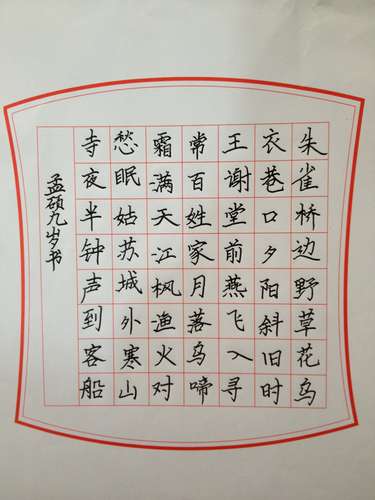 朱雀桥边野草花乌
衣巷口夕阳斜旧时
王谢堂前燕飞入寻
常百姓家月落乌啼
霜满天江枫渔火对
愁眠姑苏城外寒山
寺夜半钟声到客船
孟硕九岁书